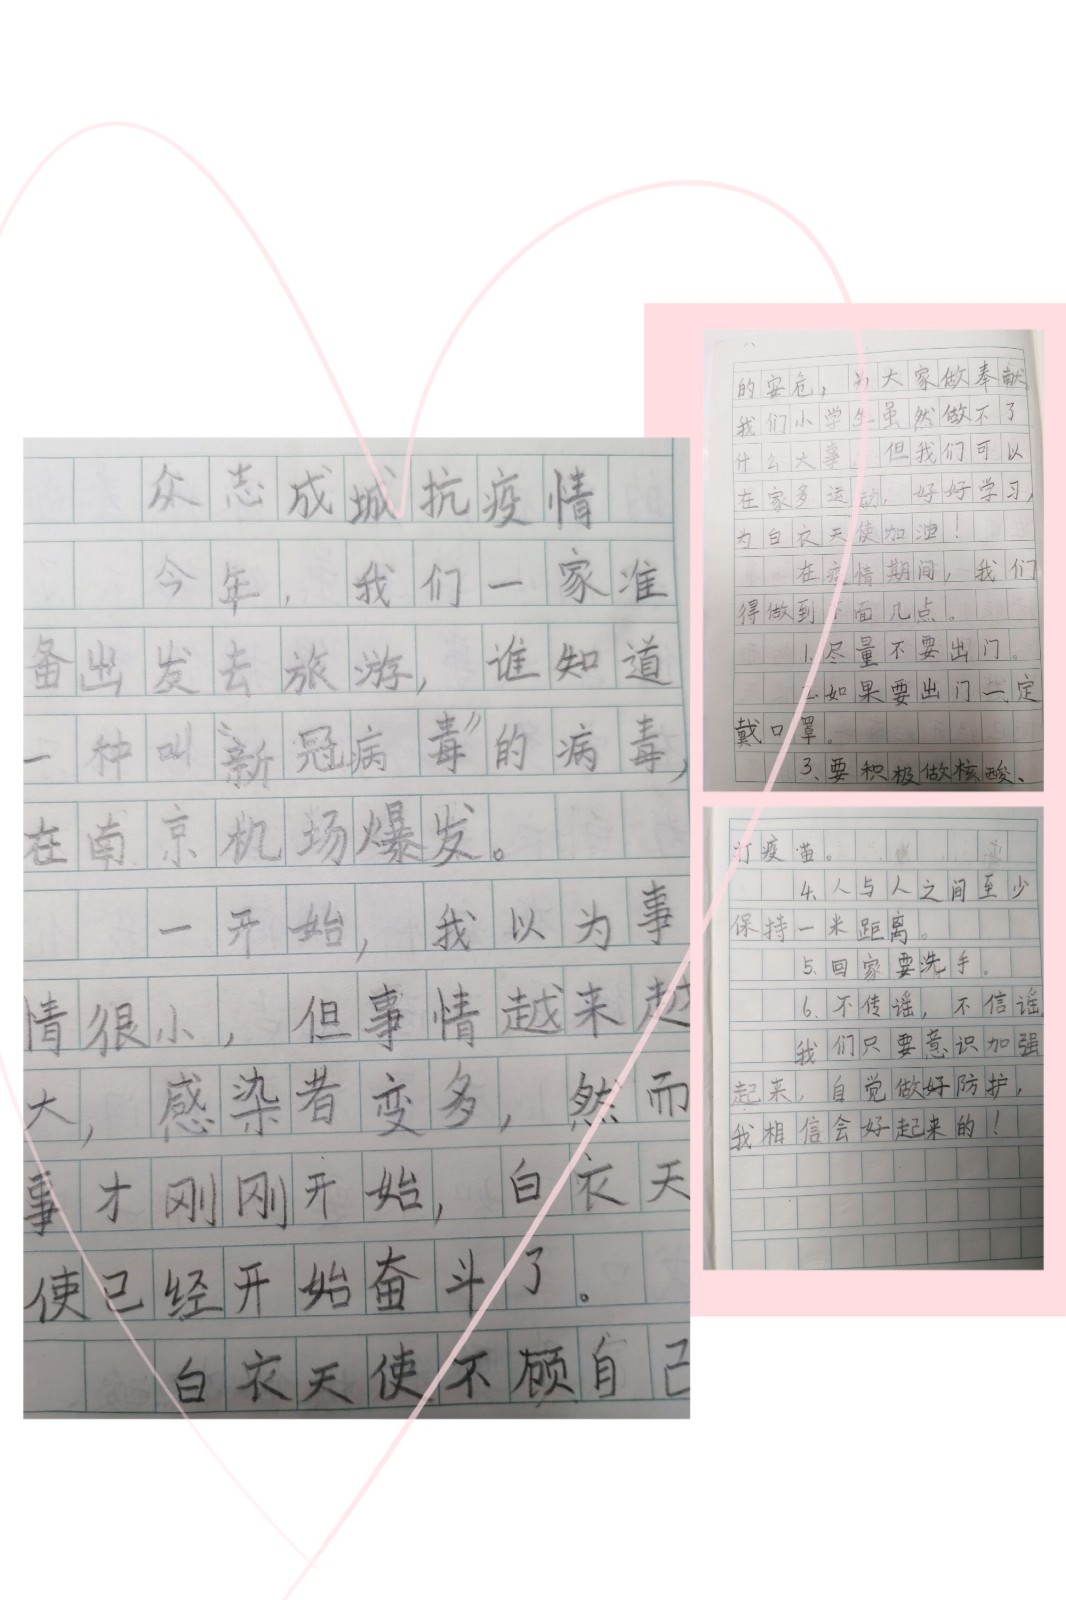 众志成城抗疫情
今年，我们一家准
备出发去旅游，谁知道
一种叫“新冠病毒”的病毒，
在南京机场爆发。
一开始，我以为事
情很小，但事情越来越
大，感染者变多，然而
事才刚刚开始，白衣天
使已经开始奋斗了。
白衣天使不顾自己
的安危，为大家做奉献，
我们小学生虽然做不了
什么大事，但我们可以
在家多运动，好好学习，
为白衣天使加油！
在疫情期间，我们
得做到下面几点。
1.尽量不要出门。
2.如果要出门一定
戴口罩。
3、要积极做核酸、
打疫苗。
4.人与人之间至少
保持一米距离。
5.回家要洗手。
6.不传谣，不信谣。
我们只要意识加强
起来，自觉做好防护，
我相信会好起来的！